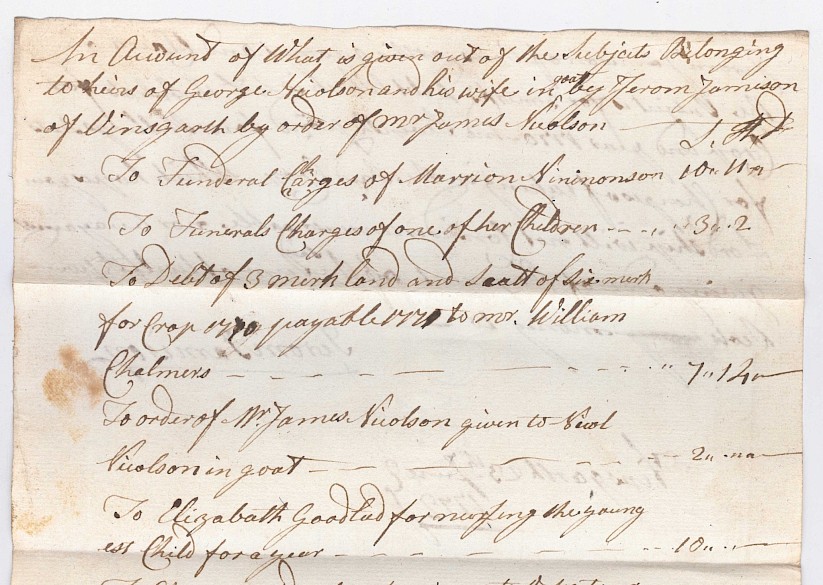 An Account of What is given out of the Subjects Belonging
to heirs of George Nicolson and his wife in goat by Jerom Jamison
of Vinsgarth by order of mr James Nicolson
To Funderal Charges of Marrion Nininonson 10 11
To Funerals Charges of one of her Children 3 2
To Debt of 3 merk land and Scatt of six merk
for Crop 1770 payable 1771 to mr. William
Chalmers 7 14
To order of Mr James Nicolson given to Nicol
Nicolson in goat 2
To Elizabath Goodlad for nursing the young
est Child for a year 10